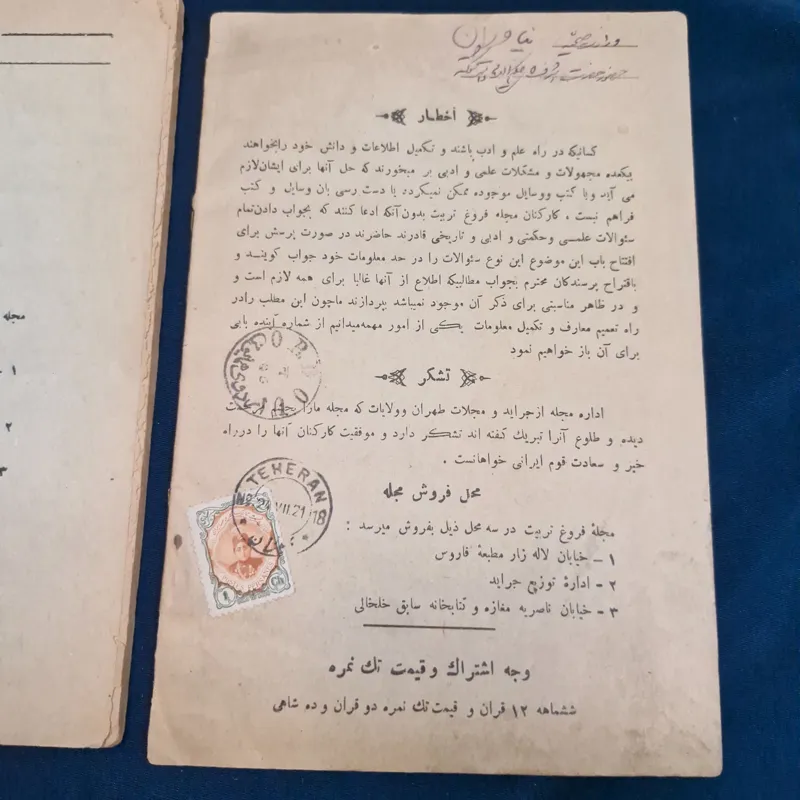 مجله
۱
۲
۳
اخطار
کسانیکه در راه علم و ادب باشند و تکمیل اطلاعات و دانش خود رابخواهند
بیکعده مجهولات و مشکلات علمی و ادبی بر میخورند که حل آنها برای ایشان لازم
می آید وبا کتب ووسایل موجوده ممکن نمیگردد یا دست رسی بان وسایل و کتب
فراهم نیست . کارکنان مجله فروغ تربیت بدون آنکه ادعا کنند که بجواب دادن تمام
سئوالات علمسی وحکمتی و ادبی و تاریخی قادرند حاضرند در صورت پرسش برای
افتتاح باب این موضوع این نوع سئوالات را در حد معلومات خود جواب کوینسد و
باقتراح پرسندکان محترم بجواب مطالبیکه اطلاع از آنها غالبا برای همه لازم است و
و در ظاهر مناسبتی برای ذکر آن موجود نمیباشد بپردازند ماچون این مطلب رادر
راه تعمیم معارف و تکمیل معلومات یکی از امور مهمه میدانیم از شماره آینده بابی
برای آن باز خواهیم نمود
تشکر
اداره مجله از جراید و مجلات طهران وولایات که مجله مارا بچشم
دیده و طلوع آنرا تبریك کیفته اند تشکر دارد و موفقیت کارکنان آنها را درراه
خیر و سعادت قوم ایرانی خواهانست .
TEHERAN
24 VII 21 18
محل فروش مجله
مجلهٔ فروغ تربیت در سه محل ذیل بفروش میرسد :
۱ – خیابان لاله زار مطبعهٔ فاروس
۲ - ادارهٔ توزیع جراید
۳ - خیابان ناصریه مغازه و کتابخانه سابق خلخالی
1 Ch
وجه اشتراك و قیمت تك نمره
ششماهه ۱۲ قران و قیمت تك نمره دو قران و ده شاهی